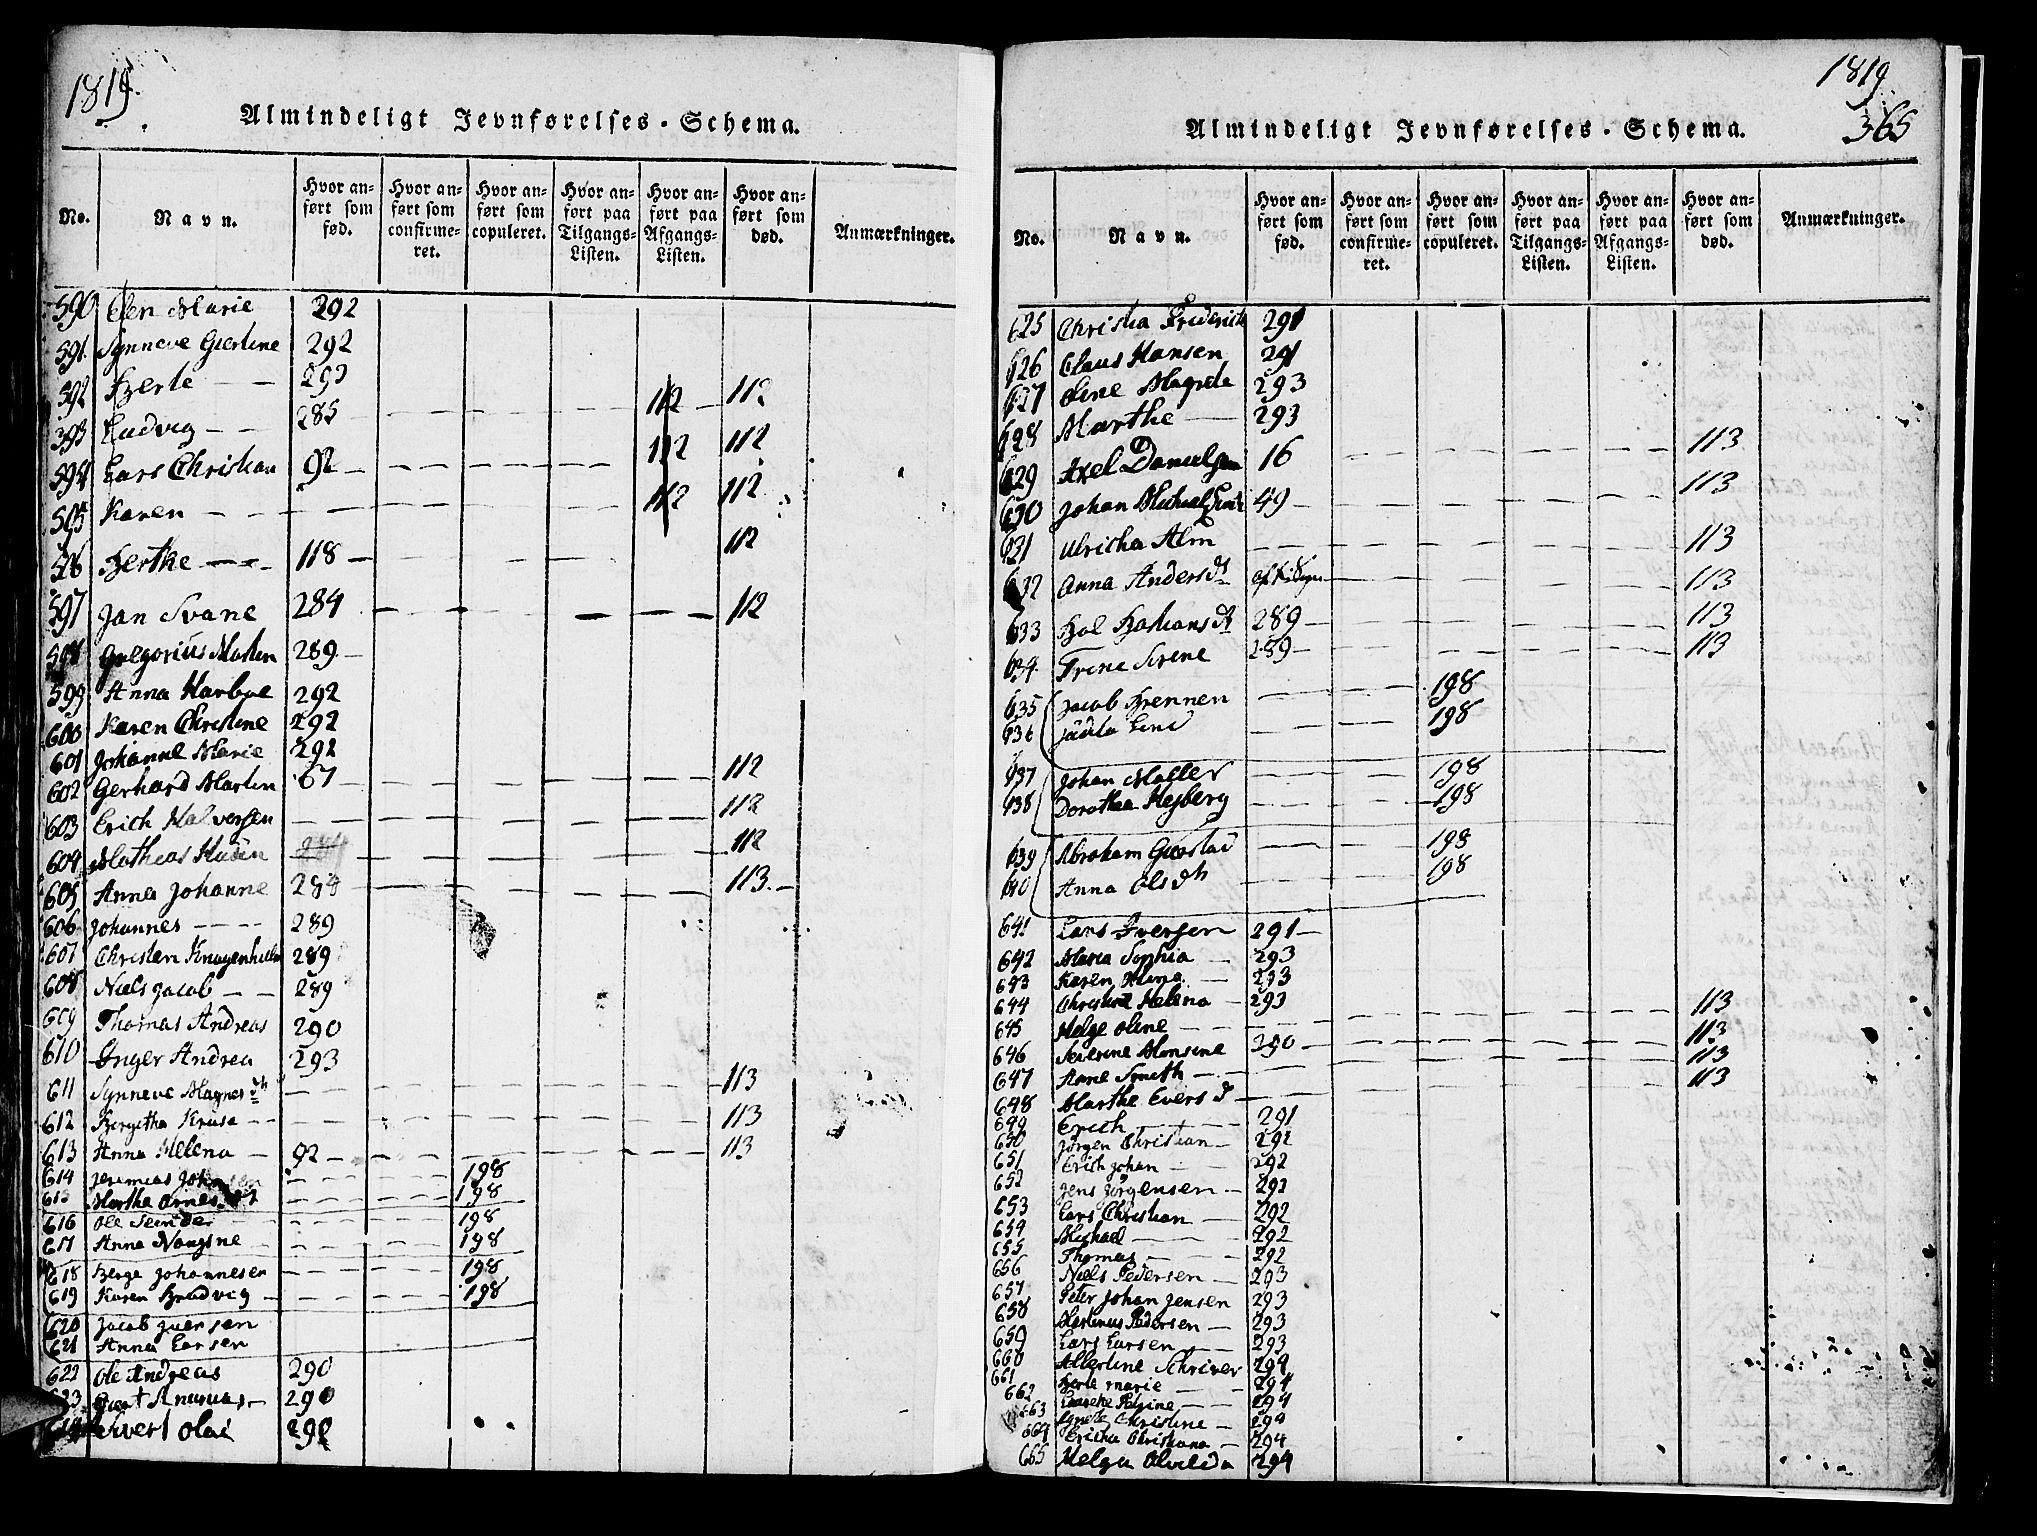 1819.
Almindeligt Jevnførelses-Schema.
No.
Navn.
Hvor anført som fød.
Hvor anført som confirmeret.
Hvor anført som copuleret.
Hvor anført paa Tilgangs-Listen.
Hvor anført paa Afgangs-Listen.
Hvor anført som død.
Anmærkninger.
590 Elen Marie 292
591 Synneve Giertine 292
592 Berte 293
593 Ludvig 285 112 112
594 Lars Christian 92 112 112
595 Karen 112 112
596 Berthe 118 112
597 Jan Svane 284 112
598 Gregorius Martin 289
599 Anna Harboe 292
600 Karen Christine 292
601 Johanne Marie 292
602 Gerhard Martin 67 112
603 Erich Halversen 112
604 Mathias 112
605 Anna Johanne 284 113
606 Johannes 289
607 Christen 289
608 Niels Jacob 289
609 Thomas Andreas 290
610 Inger Andrea 293
611 Synneve Magnesdh 113
612 Bergitha Kruse 113
613 Anna Helena 92 113
614 Jeremias 198
615 Marthe 198
616 Ole 198
617 Anna 198
618 Berge Johannesen 198
619 Karen 198
620 Jacob Juersen
621 Anna Larsen
622 Ole Andreas 290
623 290
624 Sivert Olai
1819
365
Almindeligt Jevnførelses-Schema.
No.
Navn.
Hvor anført som fød.
Hvor anført som confirmeret.
Hvor anført som copuleret.
Hvor anført paa Tilgangs-Listen.
Hvor anført paa Afgangs-Listen.
Hvor anført som død.
Anmærkninger.
625 Christia Frederich 291
626 Claus Hansen 291
627 Oline Magrete 293
628 Marthe 293
629 Axel Danielsen 16 113
630 Johan Michael 49 113
631 Ulricha Alm 113
632 Anna Andersdt 113
633 Boel 289 113
634 Trine Sirene 289 113
635 Jacob Brennen 198
636 Lind 198
637 Johan Møller 198
638 Dorothea Hejberg 198
639 Abraham Gierstad 198
640 Anna Olsdh 198
641 Lars Iversen 291
642 Maria Sophia 293
643 Karen 293
644 Christine Helena 293
645 Helge Oline 113
646 Severine Monsine 290 113
647 Anne Smith 113
648 Marthe Evers d 113
649 Erich 291
650 Jørgen Christian 292
651 Erich Johan 292
652 Jens Jørgensen 292
653 Lars Christian 292
654 Michael 292
655 Thomas 292
656 Niels Pedersen 293
657 Peter Johan Jensen 293
658 Martinus Pedersen 293
659 Lars Larsen 293
660 Allertine Schriver 294
661 Berte Marie 294
662 294
663 Christine 294
664 Ericha Christiana 294
665 Helga Olvilda 294